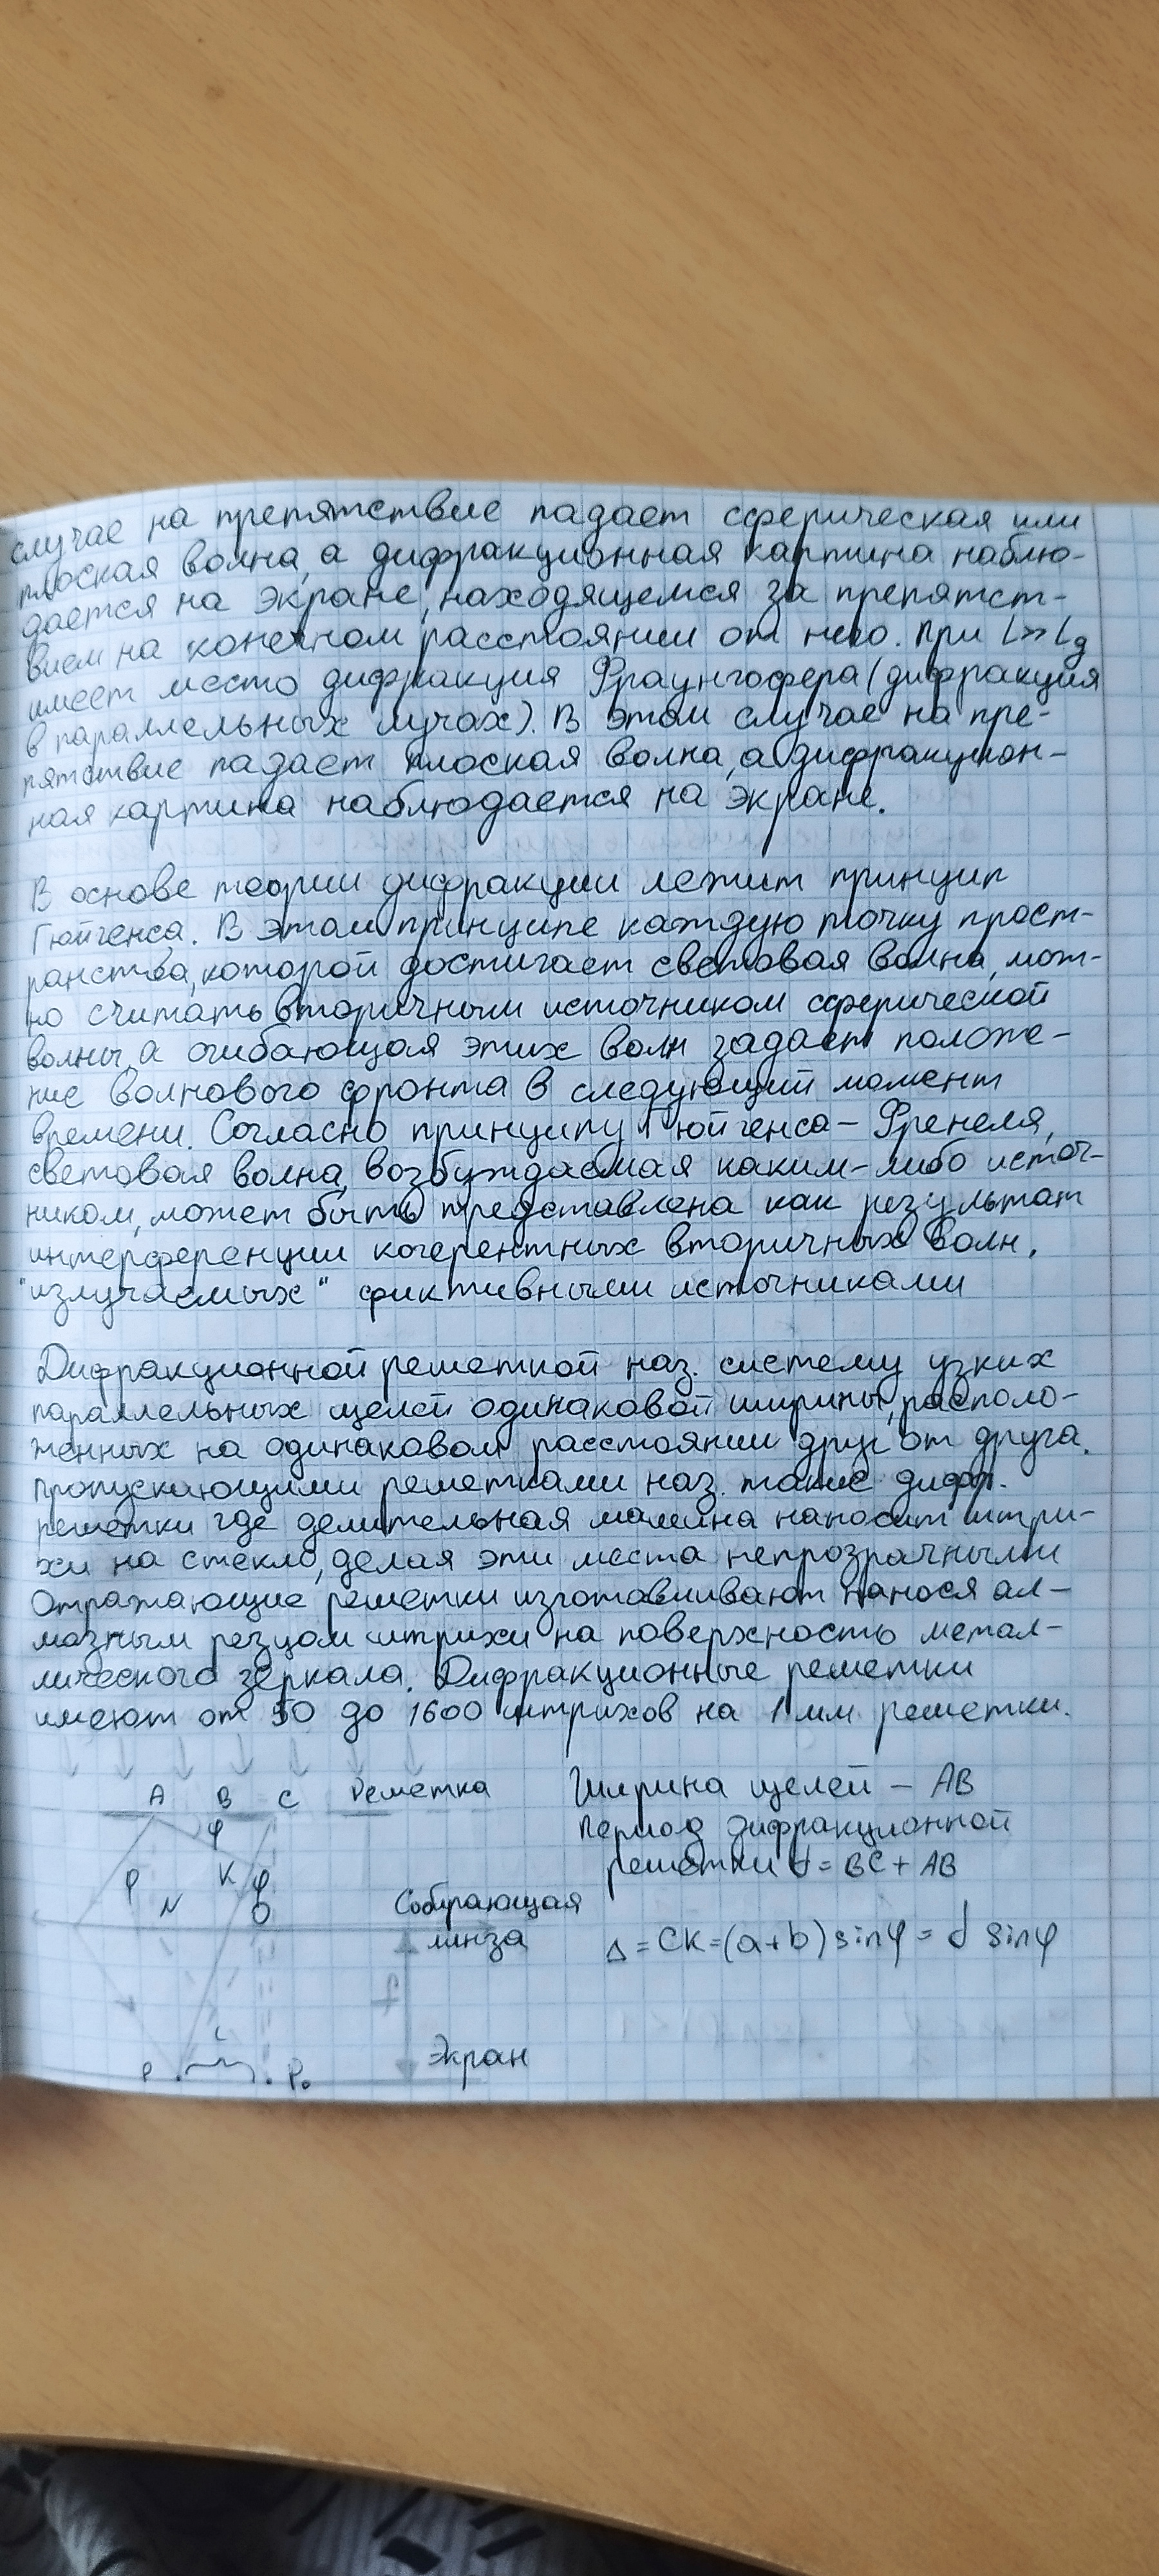 случае на препятствие падает сферическая или
плоская волна, а дифракционная картина наблю-
дается на экране, находящемся за препятст-
вием на конечном расстоянии от него. При L>>Lg
имеет место дифракция Фраунгофера (дифракция
в параллельных лучах). В этом случае на пре-
пятствие падает плоская волна, а дифракцион-
ная картина наблюдается на экране.
В основе теории дифракции лежит принцип
Гюйгенса. В этом принципе каждую точку прост-
ранства, которой достигает световая волна, мож-
но считать вторичным источником сферической
волны, а огибающая этих волн задает положе-
ние волнового фронта в следующий момент
времени. Согласно принципу Гюйгенса – Френеля,
световая волна, возбуждаемая каким-либо источ-
ником, может быть представлена как результат
интерференции когерентных вторичных волн,
"излучаемых" фиктивными источниками
Дифракционной решеткой наз. систему узких
параллельных щелей одинаковой ширины, располо-
женных на одинаковом расстоянии друг от друга.
Пропускающими решетками наз. такие дифр.
решетки где делительная машина наносит штри-
хи на стекло, делая эти места непрозрачными
Отражающие решетки изготавливают нанося ал-
мазным резцом штрихи на поверхность метал-
лического зеркала. Дифракционные решетки
имеют от 50 до 1600 штрихов на 1 мм решетки.
A B C Решетка
φ
φ K φ
N O
Собирающая
линза
f
L
P P₀
Экран
Ширина щелей – AB
Период дифракционной
решетки d = BC + AB
Δ = CK = (a+b) sinφ = d sinφ